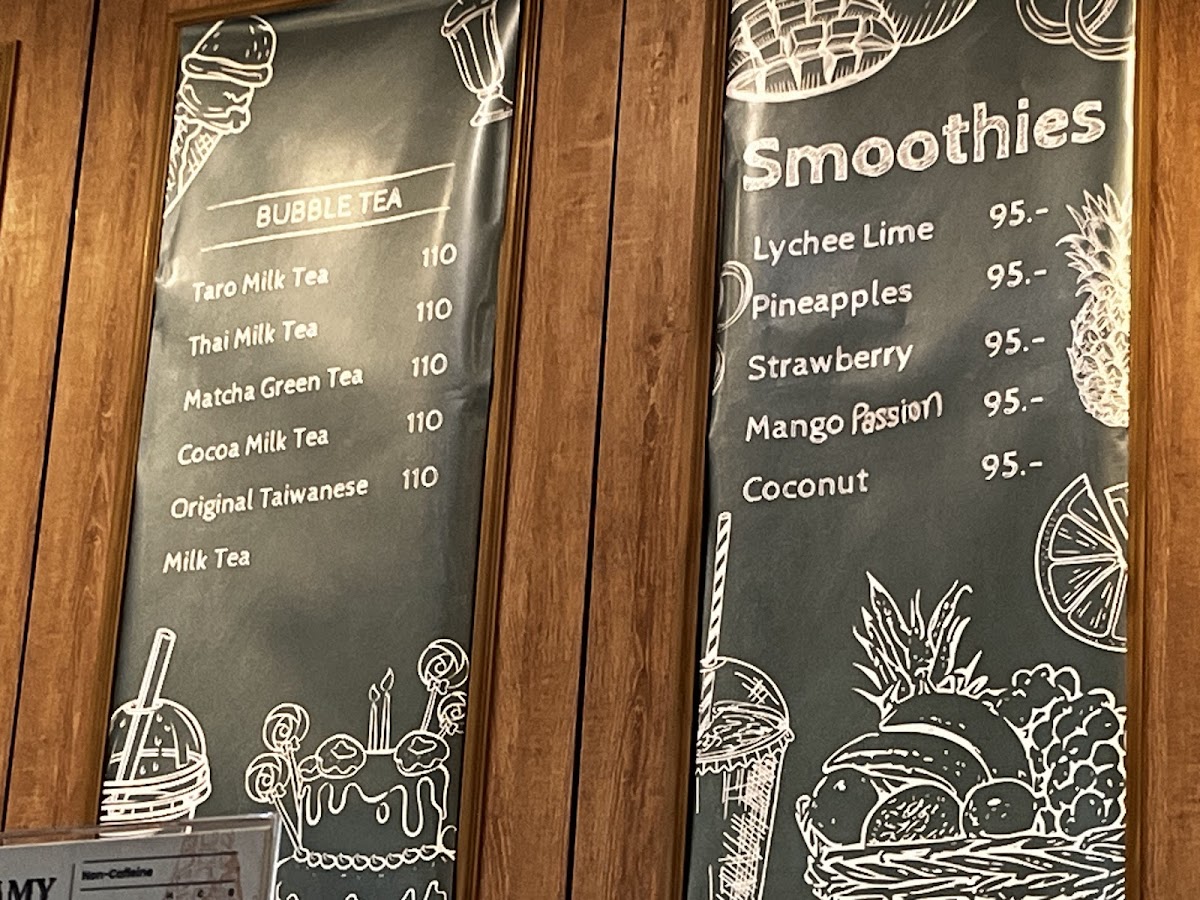 BUBBLE TEA
Taro Milk Tea 110
Thai Milk Tea 110
Matcha Green Tea 110
Cocoa Milk Tea 110
Original Taiwanese 110
Milk Tea
Smoothies
Lychee Lime 95.-
Pineapples 95.-
Strawberry 95.-
Mango Passion 95.-
Coconut 95.-
AMY
Non-Caffeine